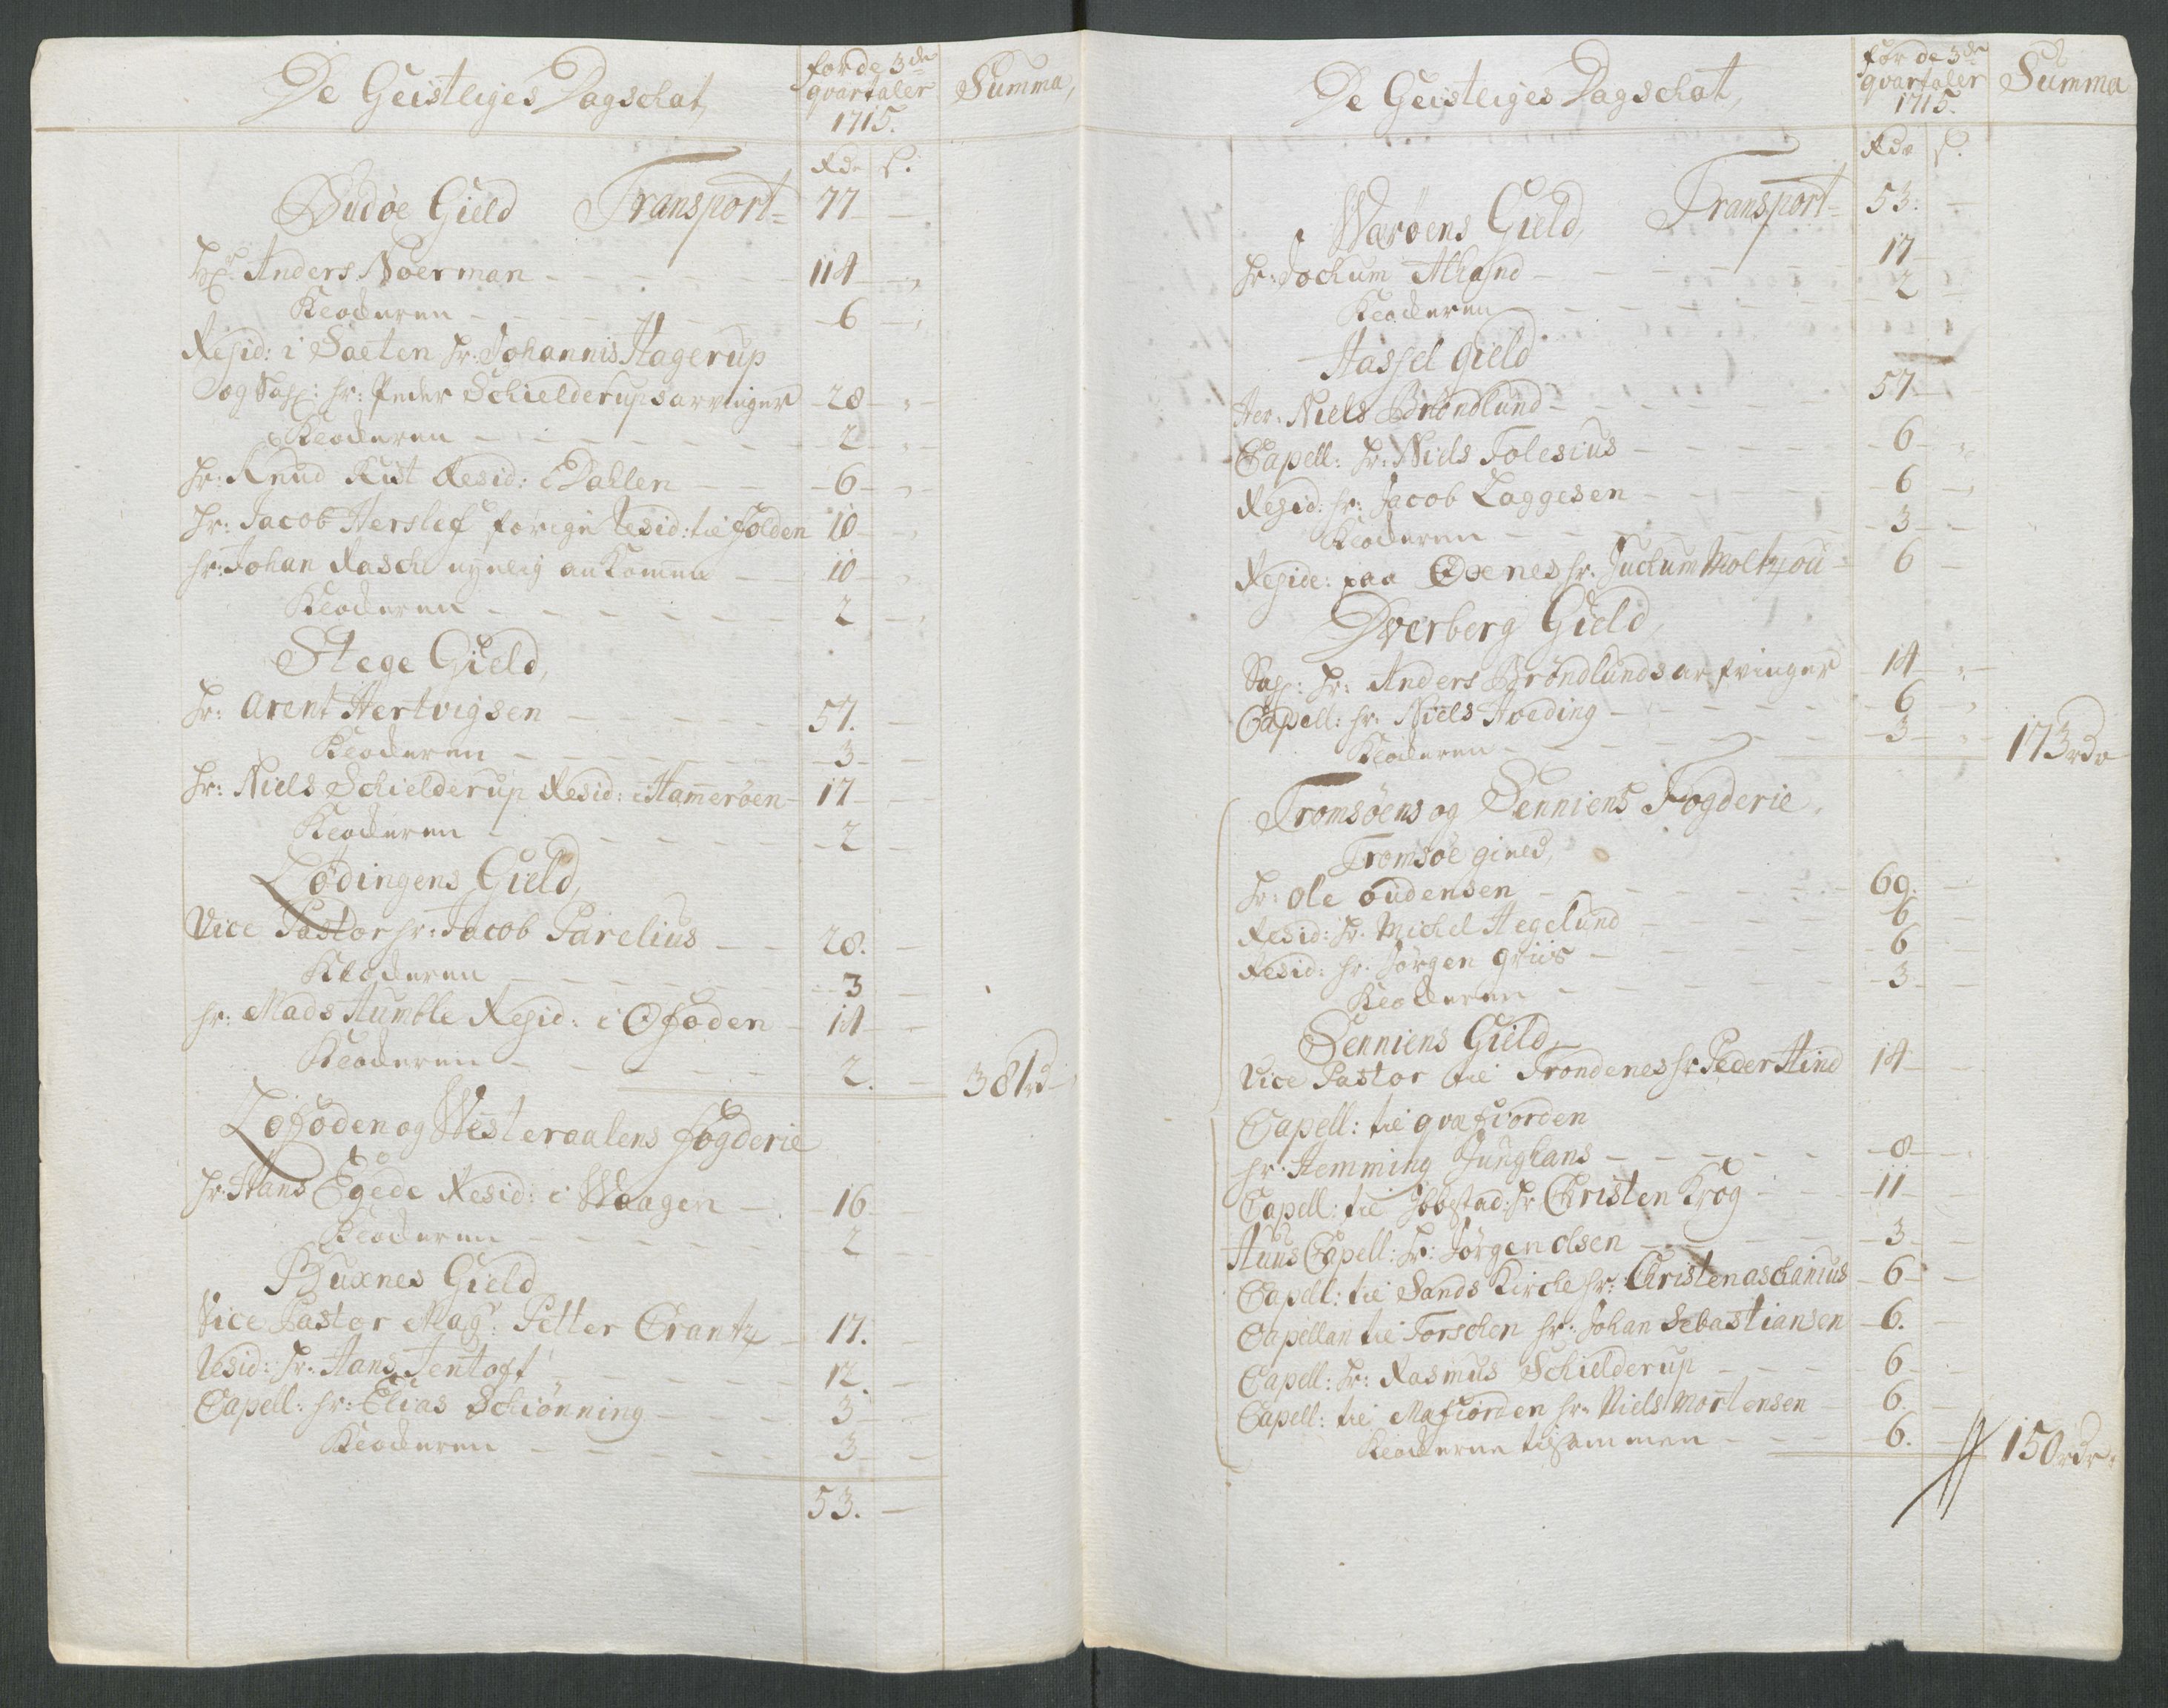 De Geistliges Dagschat, for de 3de qvartaler 1715. Summa,
Rdr ß:
Budøe Gield Transport= 77 —
Hr: Anders Noerman — 114 —
Klocheren — 6 —
Resid: i Saeten Hr: Johannis Hagerup
og Sal: hr: Peder Schielderups arvinger — 28 —
Klocheren — 2 —
Hr: Knud Rist Resid: i Dahlen — 6 —
Hr: Jacob Herslef forige Resid: til folden 10 —
hr: Johan Rasch nyelig ankommen — 10 —
Klocheren — 2 —
Stege Gield,
Hr: Arent Hertvigsen — 57. —
Klocheren — 3 —
Hr: Niels Schielderup Resid: i Hamerøen 17 —
Klocheren — 2 —
Lødingens Gield,
Vice Pastor hr: Jacob Parelius — 28. —
Klocheren — 3 —
hr: Mads Humble Resid: i Ofoden — 14 —
Klocheren — 2. — 381rd
Lofoden og Westeraalens fogderie
Hr: Hans Egede Resid: i Waagen — 16 —
Klocheren — 2 —
Buxnes Gield
Vice Pastor Magr: Petter Crantz — 17.
Resid: Hr: Hans Jentoft — 12. —
Capell: hr: Elias Schiønning — 3 —
Klocheren — 3 —
53. —
De Geistliges Dagschat, for de 3de qvartaler 1715. Summa
Rdr ß.
Warøens Gield, Transport= 53. —
Hr: Jochum — 17
Klocheren — 2
Hassel Gield
Her: Niels Brøndlund — 57
Capell: Hr: Niels Tolesius — 6 —
Resid: hr: Jacob Laggesen — 6 —
Klocheren — 3 —
Reside: paa Oxnes hr: Juchum Moltzou 6 —
Dverberg Gield,
Sal: Hr: Anders Brøndlunds arfvinger 14 —
Capell: hr: Niels Hveding — 6
Klocheren — 3 — 173rdr
Tromsøens og Senniens Fogderie,
Tromsøe gield,
Hr: Ole oudensen — 69. —
Resid: Hr. Michel Hegelund — 6 —
Resid: hr: Jørgen Griis — 6
Klocheren — 3 —
Senniens Gield,
Vice Pastor til Trondenes hr: Peder Hind 14 —
Capell: til qvæfiorden
hr: Hemming Junghans — 8 —
Capell: til Ibbestad: hr Christen Krog — 11 —
Huus Capell: Hr: Jørgen Olsen — 3 —
Capell: til Sands Kirche hr: Christen aschanius — 6 —
Capellan til Torschen hr: Johan Sebastiansen — 6. —
Capell: Hr: Rasmus Schielderup — 6 —
Capell: til Mafiorden hr: Niels Mortensen — 6. —
Klocherne tilsammen — 6. — 150rdr